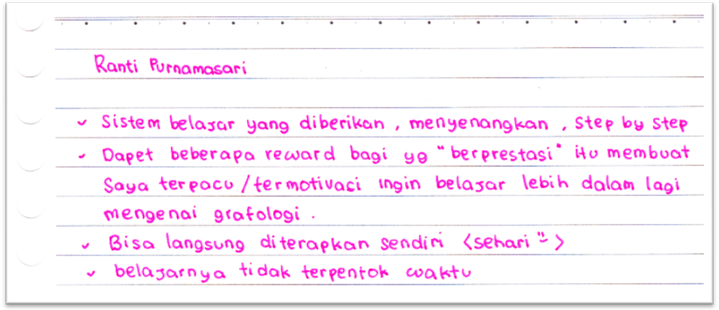 Ranti Purnamasari
✓ Sistem belajar yang diberikan, menyenangkan, step by step
✓ Dapet beberapa reward bagi yg "berprestasi" itu membuat
saya terpacu/termotivasi ingin belajar lebih dalam lagi
mengenai grafologi.
✓ Bisa langsung diterapkan sendiri <sehari "->
✓ belajarnya tidak terpentok waktu